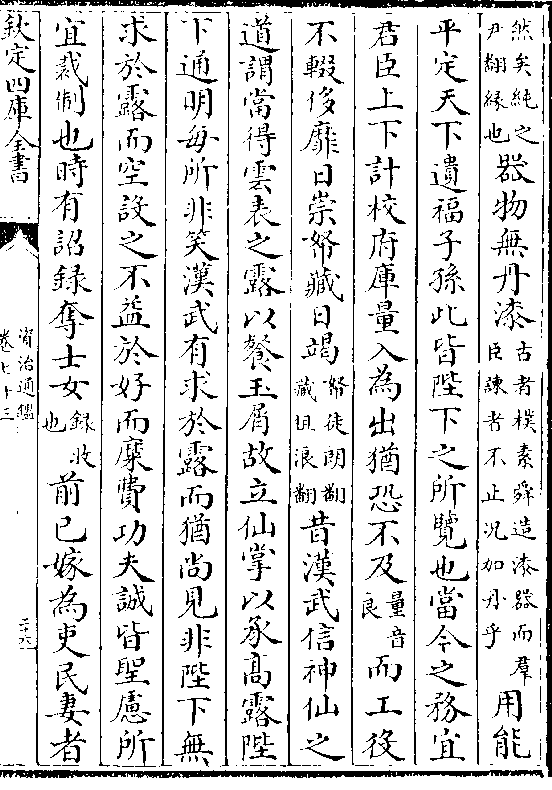 然矣純之尹翻緣也器物無丹漆古者樸素舜造漆器而羣臣諫者不止况加丹乎用能
平定天下遺福子孫此皆陛下之所覽也當今之務宜
君臣上下計校府庫量入為出猶恐不及量音良而工役
不輟侈靡日崇帑藏日竭帑徒朗翻藏徂浪翻昔漢武信神仙之
道謂當得雲表之露以餐玉屑故立仙掌以承髙露陛
下通明每所非笑漢武有求於露而猶尚見非陛下無
求於露而空設之不益於好而糜費功夫誠皆聖慮所
宜裁制也時有詔録奪士女録收也前已嫁為吏民妻者
欽定四庫全書
資治通鑑
卷七十三
二十六